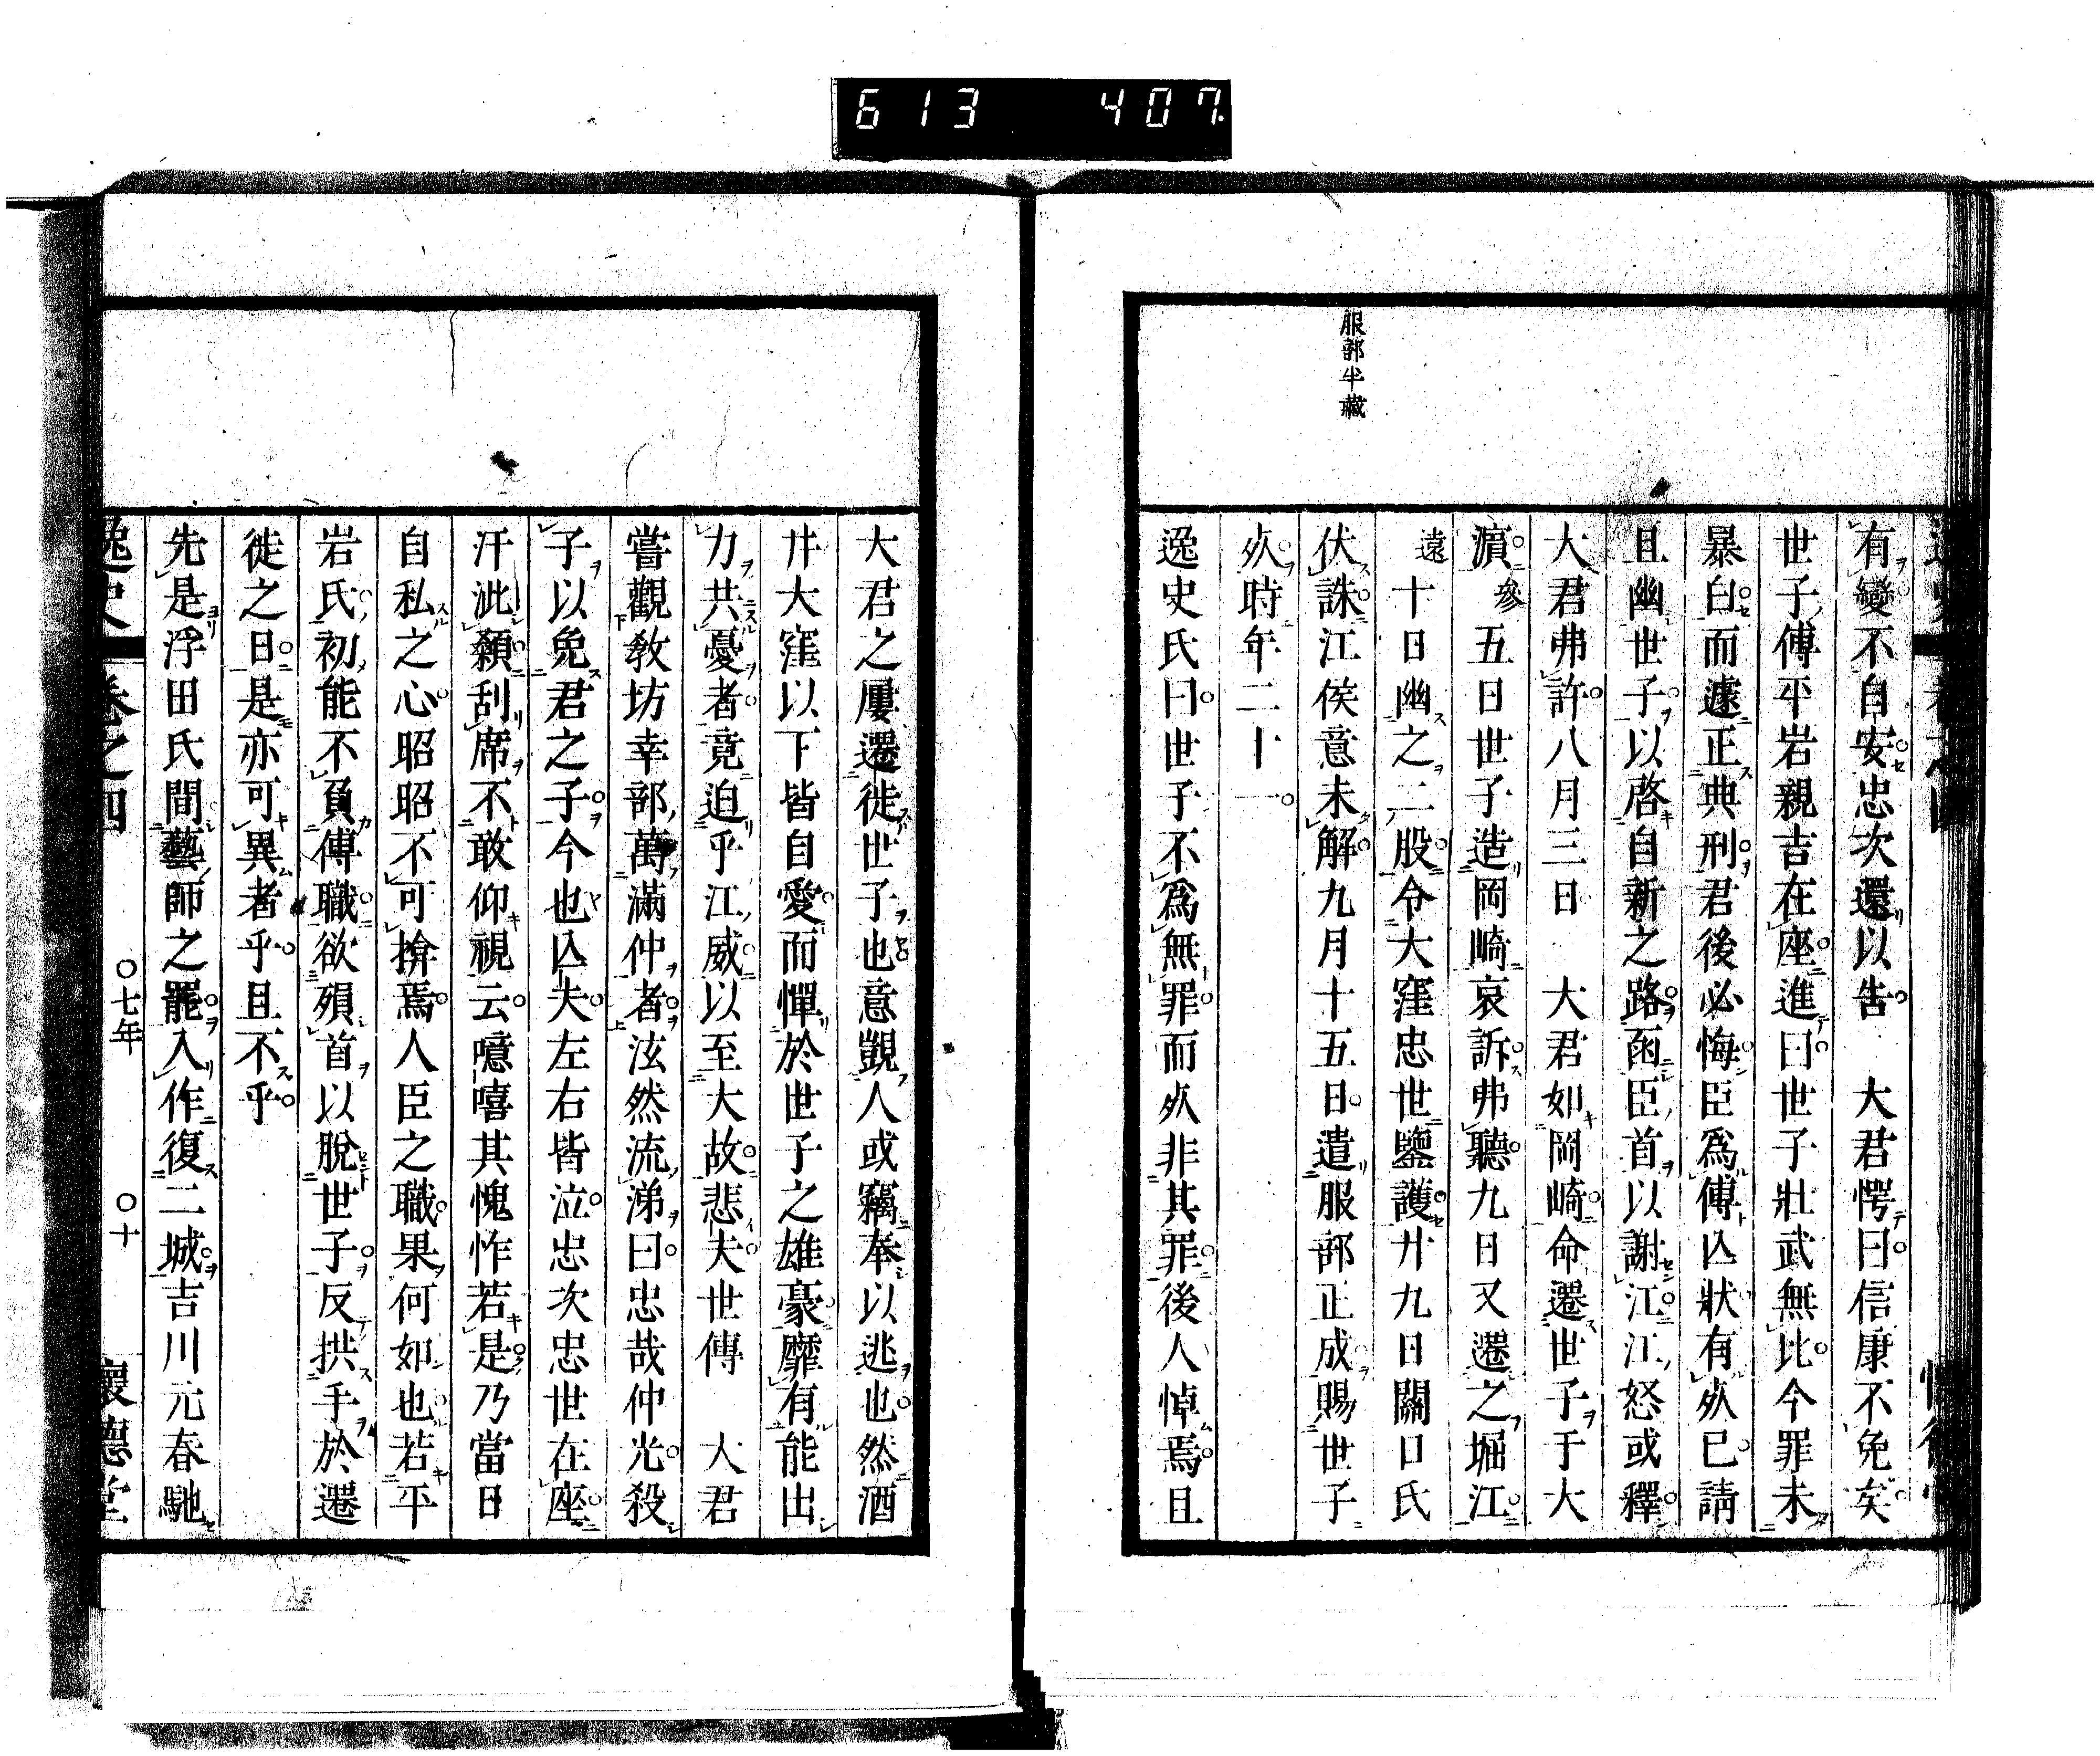 613 407.
服部半藏
有變不自安忠次還以告　大君愕曰信康不免矣
世子傅平岩親吉在座進曰世子壯武無比今罪未
暴白而遽正典刑君後必悔臣爲傅亾狀有㱙已請
且幽世子以啓自新之路函臣首以謝江江怒或釋
大君弗許八月三日　大君如岡崎命遷世子于大
濵參五日世子造岡崎哀訴弗聽九日又遷之堀江
遠十日幽之二股令大窪忠世鑒護廿九日關口氏
伏誅江侯意未解九月十五日遣服部正成賜世子
㱙時年二十一
逸史氏曰世子不爲無罪而㱙非其罪後人悼焉且
大君之屢遷徙世子也意覬人或竊奉以逃也然酒
井大窪以下皆自愛而憚於世子之雄豪靡有能出
力共憂者竟迫乎江威以至大故悲夫世傳　大君
嘗觀敎坊幸部萬滿仲者泫然流涕曰忠哉仲光殺
子以免君之子今也亾夫左右皆泣忠次忠世在座
汗泚顙刮席不敢仰視云噫嘻其愧怍若是乃當日
自私之心昭昭不可揜焉人臣之職果何如也若平
岩氏初能不負傅職欲殞首以脫世子反拱手於遷
徙之日是亦可異者乎且不乎
先是浮田氏間藝師之罷入作復二城吉川元春馳
逸史 卷之四 〇七年 〇十 懷德堂